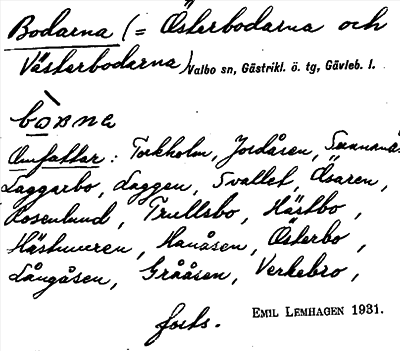 Bodarna (= Österbodarna och
Västerbodarna) Valbo sn, Gästrikl. ö. tg, Gävleb. l.
Omfattar: Torkholm, Jordåsen,
Laggarbo, Laggen, Svallet, Åsaren,
Rosenlund, Trullsbo, Hästbo,
Hästmuren, Hanåsen, Österbo,
Långåsen, Grååsen, Verkebro,
forts.
EMIL LEMHAGEN 1931.